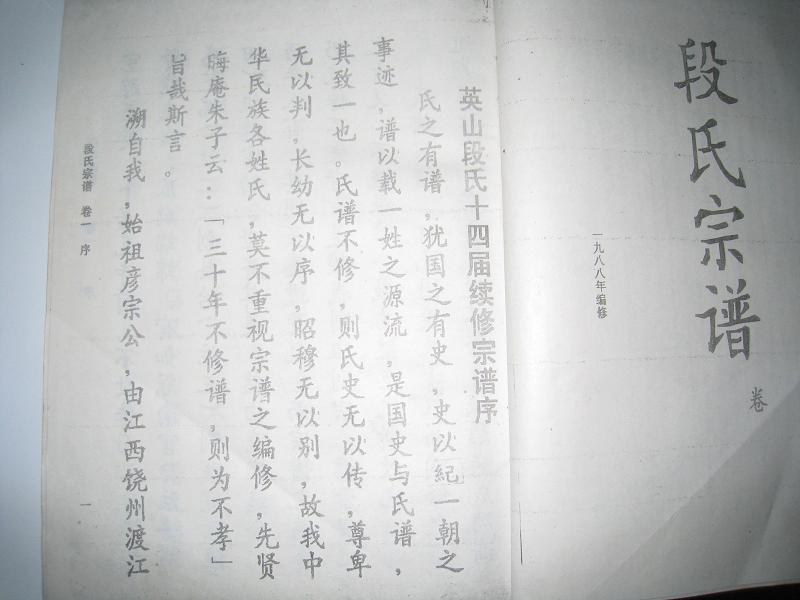 段氏宗谱
卷
一九八八年编修
英山段氏十四届续修宗谱序
氏之有谱，犹国之有史，史以紀一朝之
事迹，谱以载一姓之源流，是国史与氏谱，
其致一也。氏谱不修，则氏史无以传，尊卑
无以判。长幼无以序，昭穆无以别，故我中
华民族各姓氏，莫不重视宗谱之编修，先贤
晦庵朱子云：「三十年不修谱，则为不孝」
旨哉斯言。
溯自我，始祖彦宗公，由江西饶州渡江
段氏宗谱 卷一 序
一